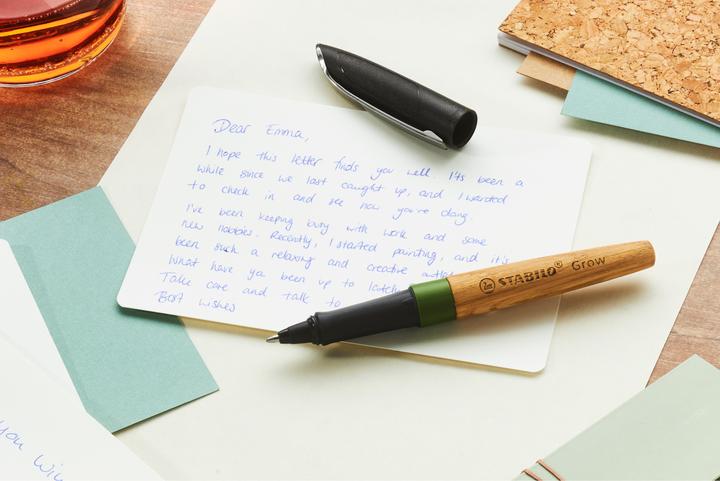 Dear Emma,
I hope this letter finds you well. It's been a
while since we last caught up, and I wanted
to check in and see how you're doing.
I've been keeping busy with work and some
new hobbies. Recently, I started painting, and it's
been such a relaxing and creative outle
What have ya been up to lately
Take care and talk to
Best wishes
STABILO® Grow
you